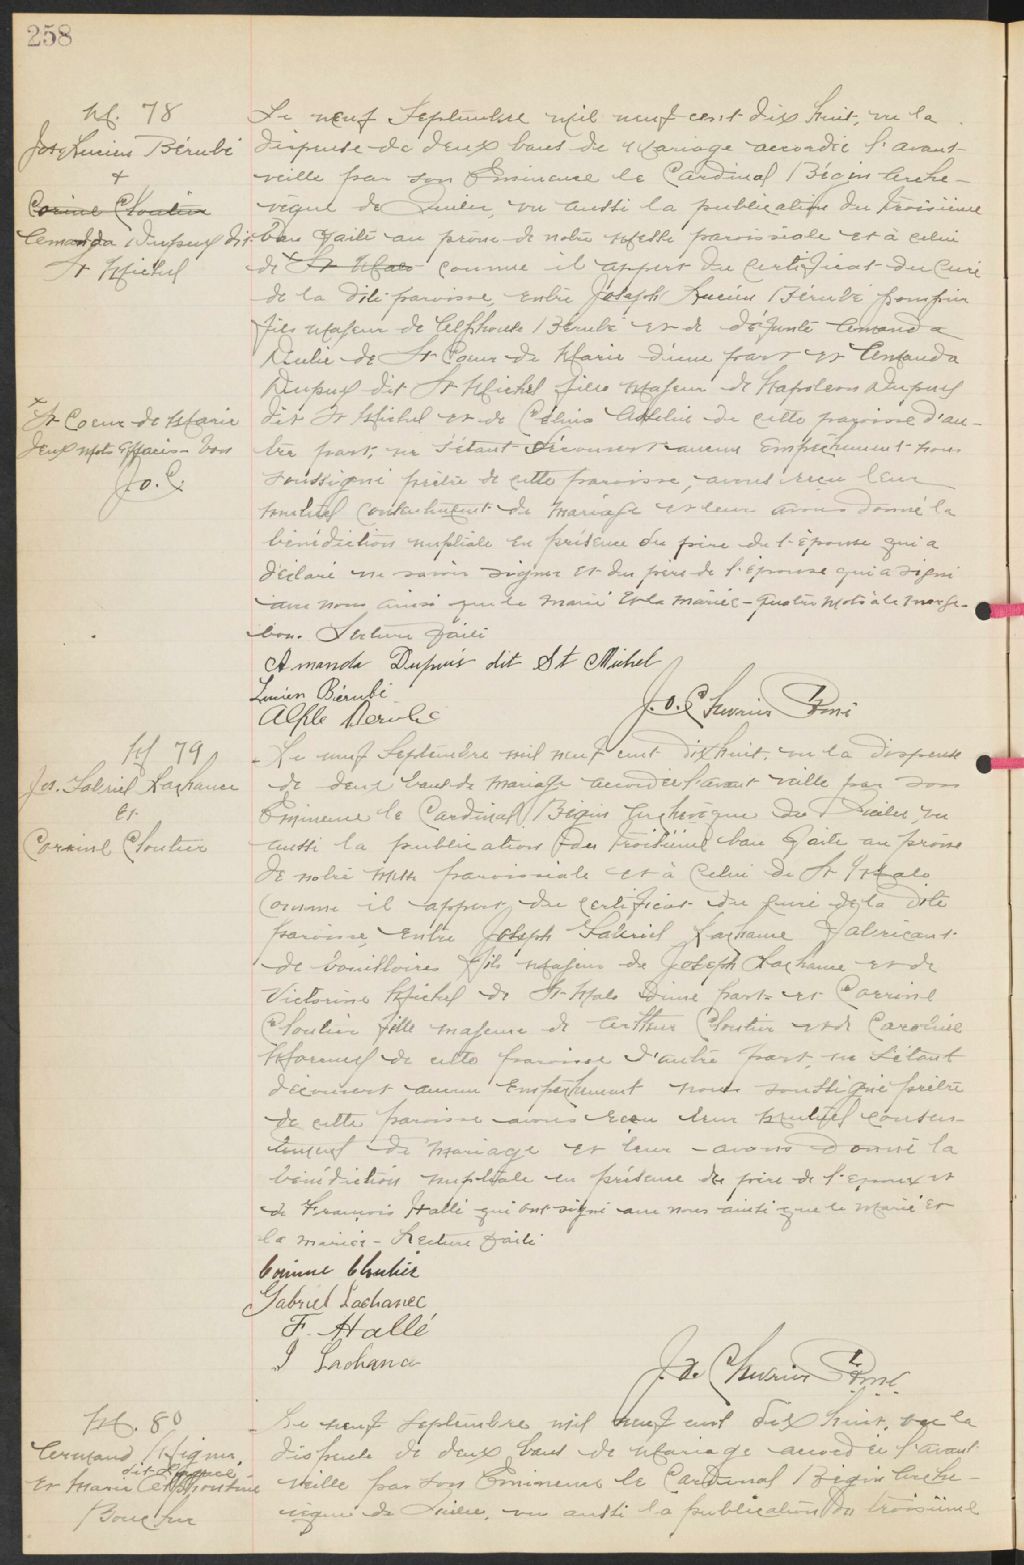 258
M. 78
Jos Lucien Bérubé
+
Corinne Cloutier
Amanda Dupuis dit
St Michel
Le neuf Septembre mil neuf cent dix huit, vu la
dispense de deux bans de mariage accordée l'avant
veille par son Eminence le Cardinal Bégin Arche-
vêque de Québec, vu aussi la publication du troisième
ban faite au prône de notre messe paroissiale et à celui
de x St Malo comme il appert du certificat du curé
de la dite paroisse, entre Joseph Lucien Bérubé pompier
fils majeur de Alphonse Bérubé et de défunte Amanda
de St Coeur de Marie d'une part et Amanda
Dupuis dit St Michel fille majeur de Napoleon Dupuis
x St Coeur de Marie
deux mots effacés bon
J.O.C.
dit St Michel et de de cette paroisse d'au-
tre part, ne s'étant découvert aucun empêchement nous
soussigné prêtre de cette paroisse, avons reçu leur
mutuel consentement de mariage et leur avons donné la
bénédiction nuptiale en présence du père de l'épouse qui a
déclaré ne savoir signer et du père de l'époux qui a signé
avec nous ainsi que le marié et la mariée - quatre mots à la marge
bon. Lecture faite
Amanda Dupuis dit St Michel
Lucien Bérubé
J.O. Chevrier Ptre
M 79
Jos. Gabriel Lachance
et
Corinne Cloutier
Le neuf Septembre mil neuf cent dix huit, vu la dispense
de deux bans de mariage accordée l'avant veille par son
Eminence le Cardinal Bégin Archevêque de Québec, vu
aussi la publication du troisième ban faite au prône
de notre messe paroissiale et à celui de St Malo
comme il appert du certificat du curé de la dite
paroisse, entre Joseph Gabriel Lachance fabricant
de bouilloires fils majeur de Joseph Lachance et de
Victorine Michel de St Malo d'une part et Corrine
Cloutier fille majeure de Arthur Cloutier et de Caroline
de cette paroisse d'autre part, ne s'étant
découvert aucun empêchement nous soussigné prêtre
de cette paroisse avons reçu leur mutuel consen-
tement de mariage et leur avons donné la
bénédiction nuptiale en présence du père de l'époux et
de François Hallé qui ont signé avec nous ainsi que le marié et
la mariée - Lecture faite
Corinne Cloutier
Gabriel Lachance
F. Hallé
J Lachance
J.O. Chevrier Ptre
M. 80
et Marie
Boucher
Le neuf septembre mil neuf cent dix huit, vu la
dispense de deux bans de mariage accordée l'avant
veille par son Eminence le Cardinal Bégin Arche-
vêque de Québec, vu aussi la publication du troisième